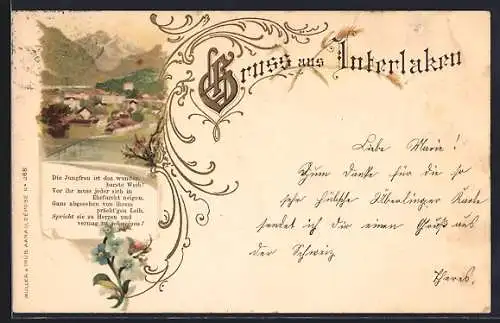 Gruss aus Interlaken
Die Jungfrau ist das wunder-
barste Weib!
Vor ihr muss jeder sich in
Ehrfurcht neigen.
Ganz abgesehen von ihrem
prächt'gen Leib,
Spricht sie zu Herzen und
vermag zu schweigen!
MÜLLER & TRÜB, AARAU, DÉPOSÉ No 268
Liebe Marie!
Zum Danke für die so
sehr hübsche Überlinger Karte
sendet ich dir einen Gruß aus
der Schweiz
Theres.